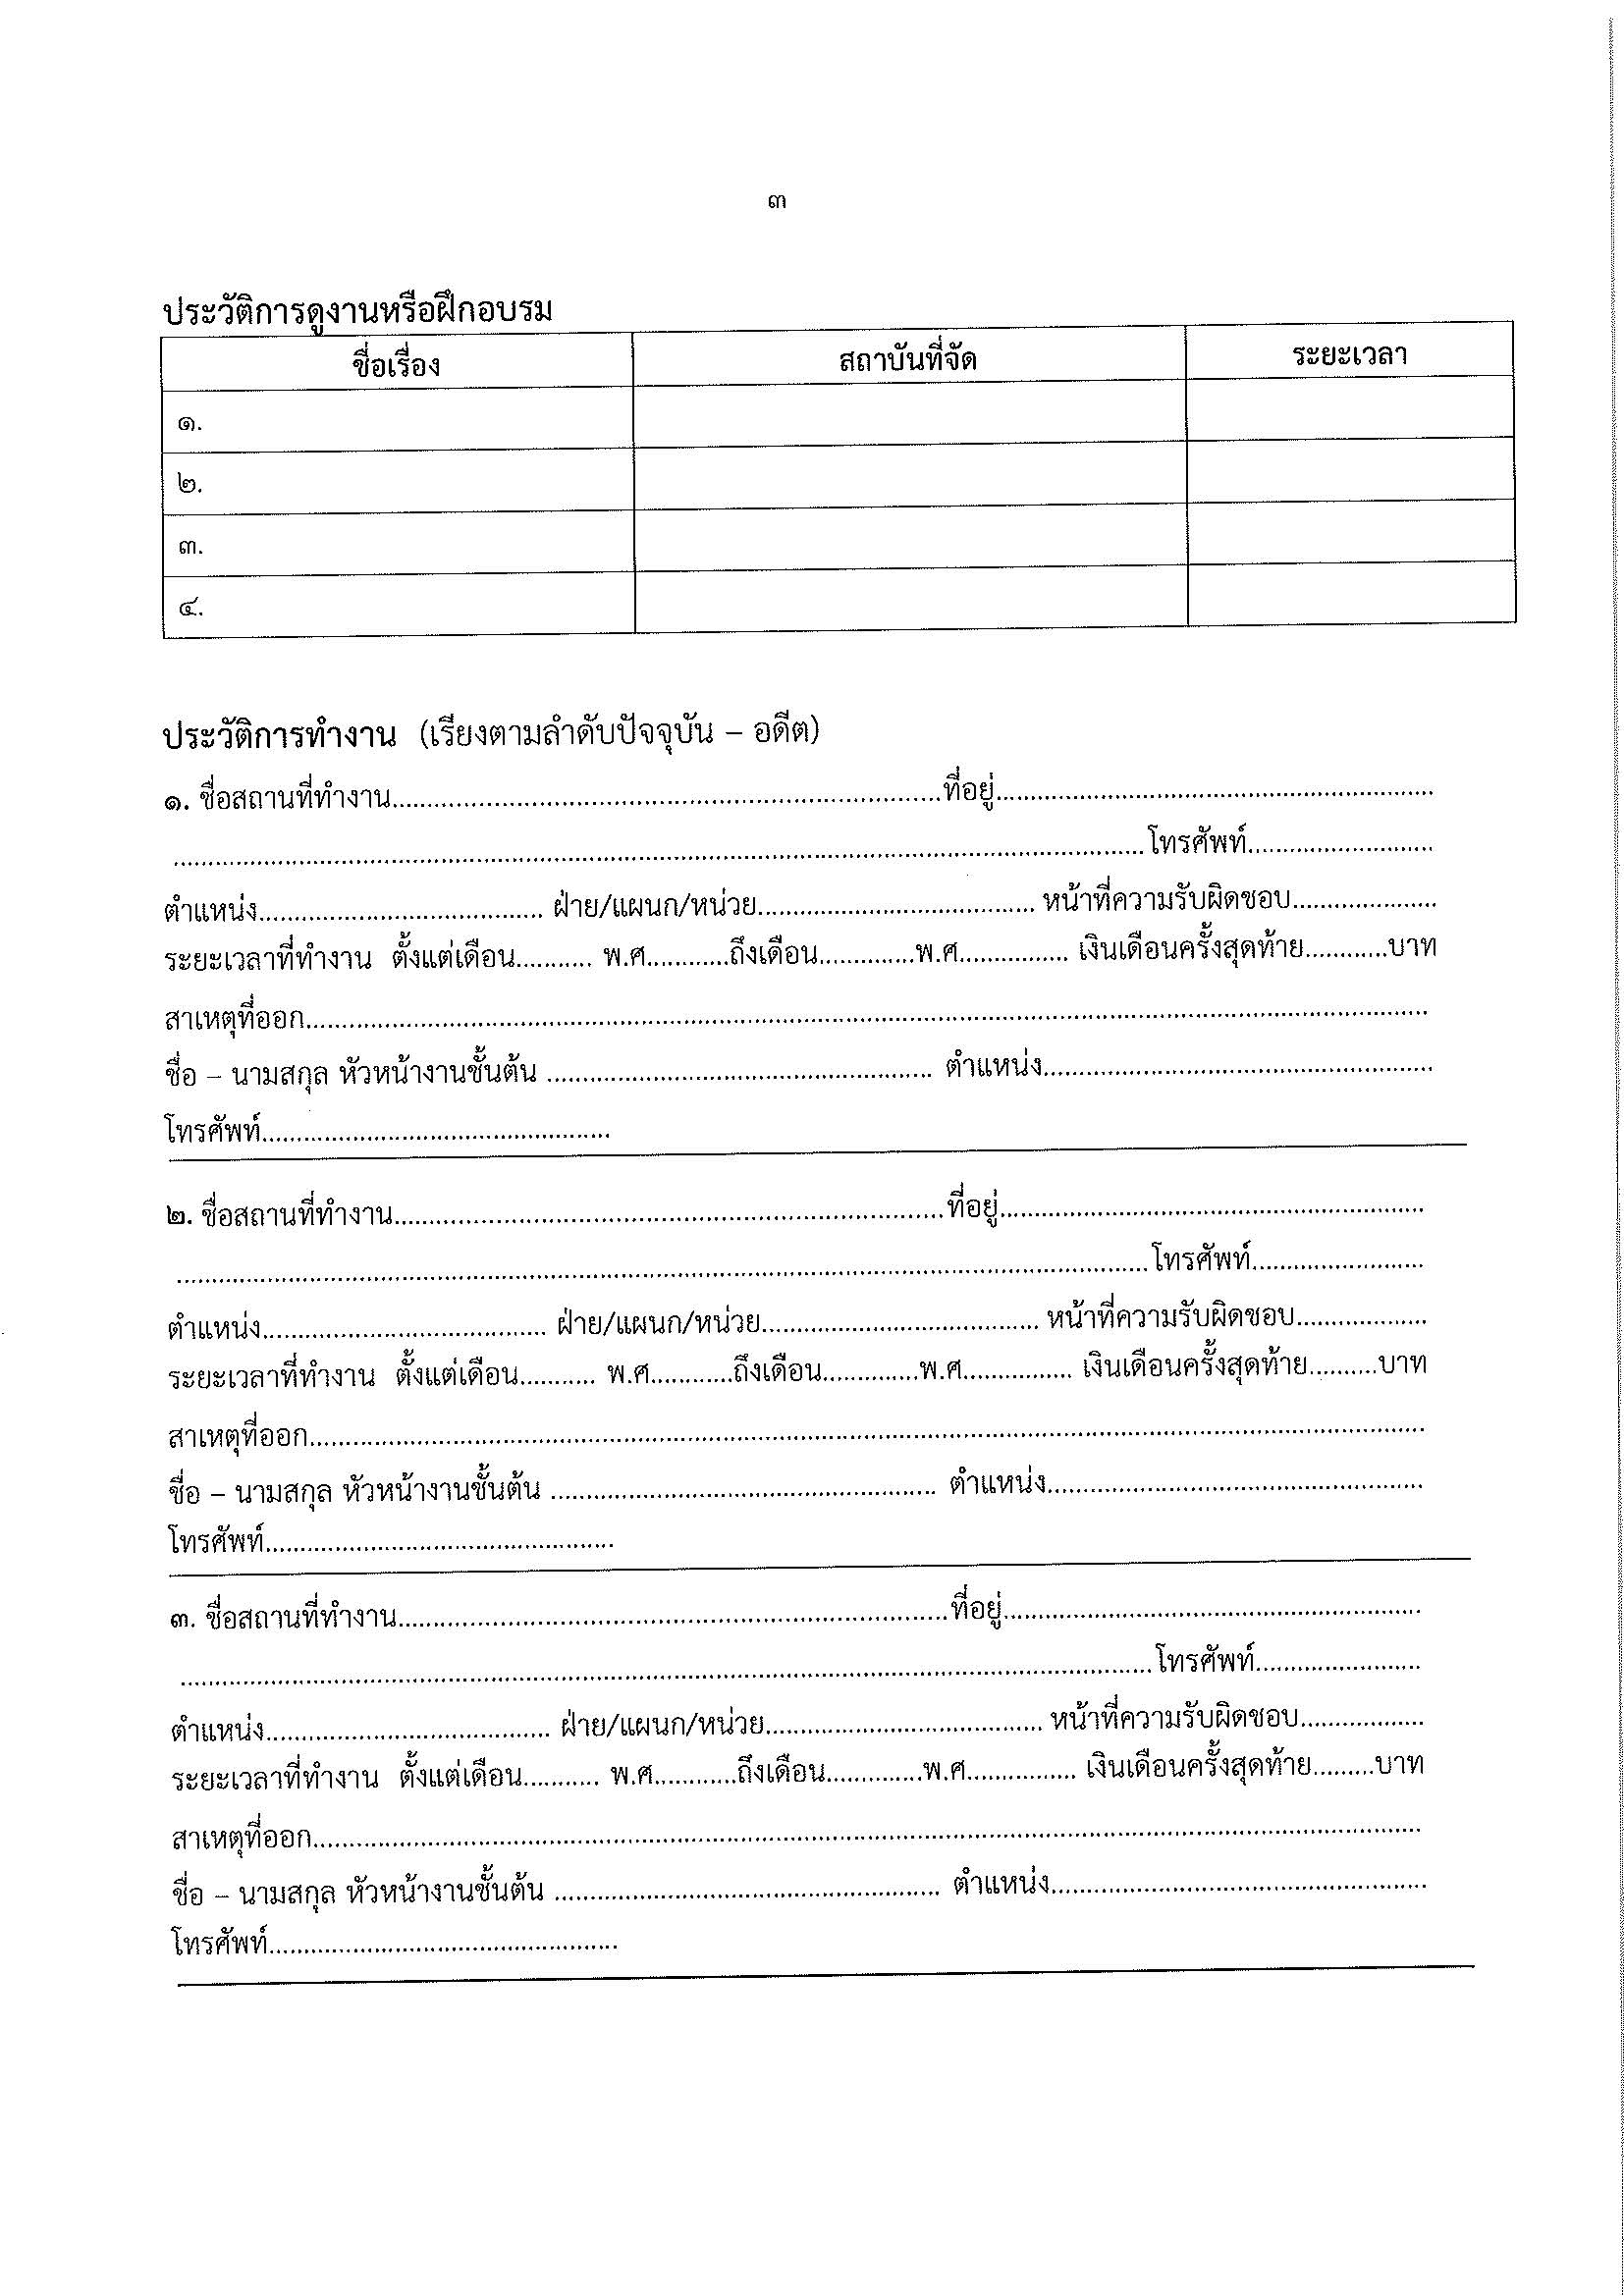 ๓
ประวัติการดูงานหรือฝึกอบรม
ชื่อเรื่อง สถาบันที่จัด ระยะเวลา
๑.
๒.
๓.
๔.
ประวัติการทำงาน (เรียงตามลำดับปัจจุบัน – อดีต)
๑. ชื่อสถานที่ทำงาน..........................................................ที่อยู่..........................................................
..........................................................โทรศัพท์..........................
ตำแหน่ง........................................ ฝ่าย/แผนก/หน่วย........................................ หน้าที่ความรับผิดชอบ.....................
ระยะเวลาที่ทำงาน ตั้งแต่เดือน........... พ.ศ............ถึงเดือน..............พ.ศ................ เงินเดือนครั้งสุดท้าย............บาท
สาเหตุที่ออก..........................................................
ชื่อ – นามสกุล หัวหน้างานชั้นต้น .......................................................... ตำแหน่ง..........................................................
โทรศัพท์..................................................
๒. ชื่อสถานที่ทำงาน..........................................................ที่อยู่..........................................................
..........................................................โทรศัพท์.........................
ตำแหน่ง........................................ ฝ่าย/แผนก/หน่วย........................................ หน้าที่ความรับผิดชอบ...................
ระยะเวลาที่ทำงาน ตั้งแต่เดือน........... พ.ศ............ถึงเดือน..............พ.ศ................ เงินเดือนครั้งสุดท้าย..........บาท
สาเหตุที่ออก..........................................................
ชื่อ – นามสกุล หัวหน้างานชั้นต้น .......................................................... ตำแหน่ง..........................................................
โทรศัพท์..................................................
๓. ชื่อสถานที่ทำงาน..........................................................ที่อยู่..........................................................
..........................................................โทรศัพท์........................
ตำแหน่ง........................................ ฝ่าย/แผนก/หน่วย........................................ หน้าที่ความรับผิดชอบ..................
ระยะเวลาที่ทำงาน ตั้งแต่เดือน........... พ.ศ............ถึงเดือน..............พ.ศ................ เงินเดือนครั้งสุดท้าย.........บาท
สาเหตุที่ออก..........................................................
ชื่อ – นามสกุล หัวหน้างานชั้นต้น .......................................................... ตำแหน่ง..........................................................
โทรศัพท์..................................................